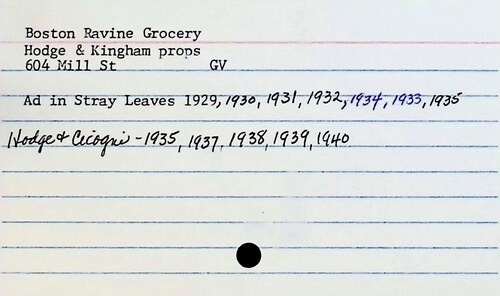 Boston Ravine Grocery
Hodge & Kingham props
604 Mill St GV
Ad in Stray Leaves 1929, 1930, 1931, 1932, 1934, 1933, 1935
Hodge & Cicogni - 1935, 1937, 1938, 1939, 1940